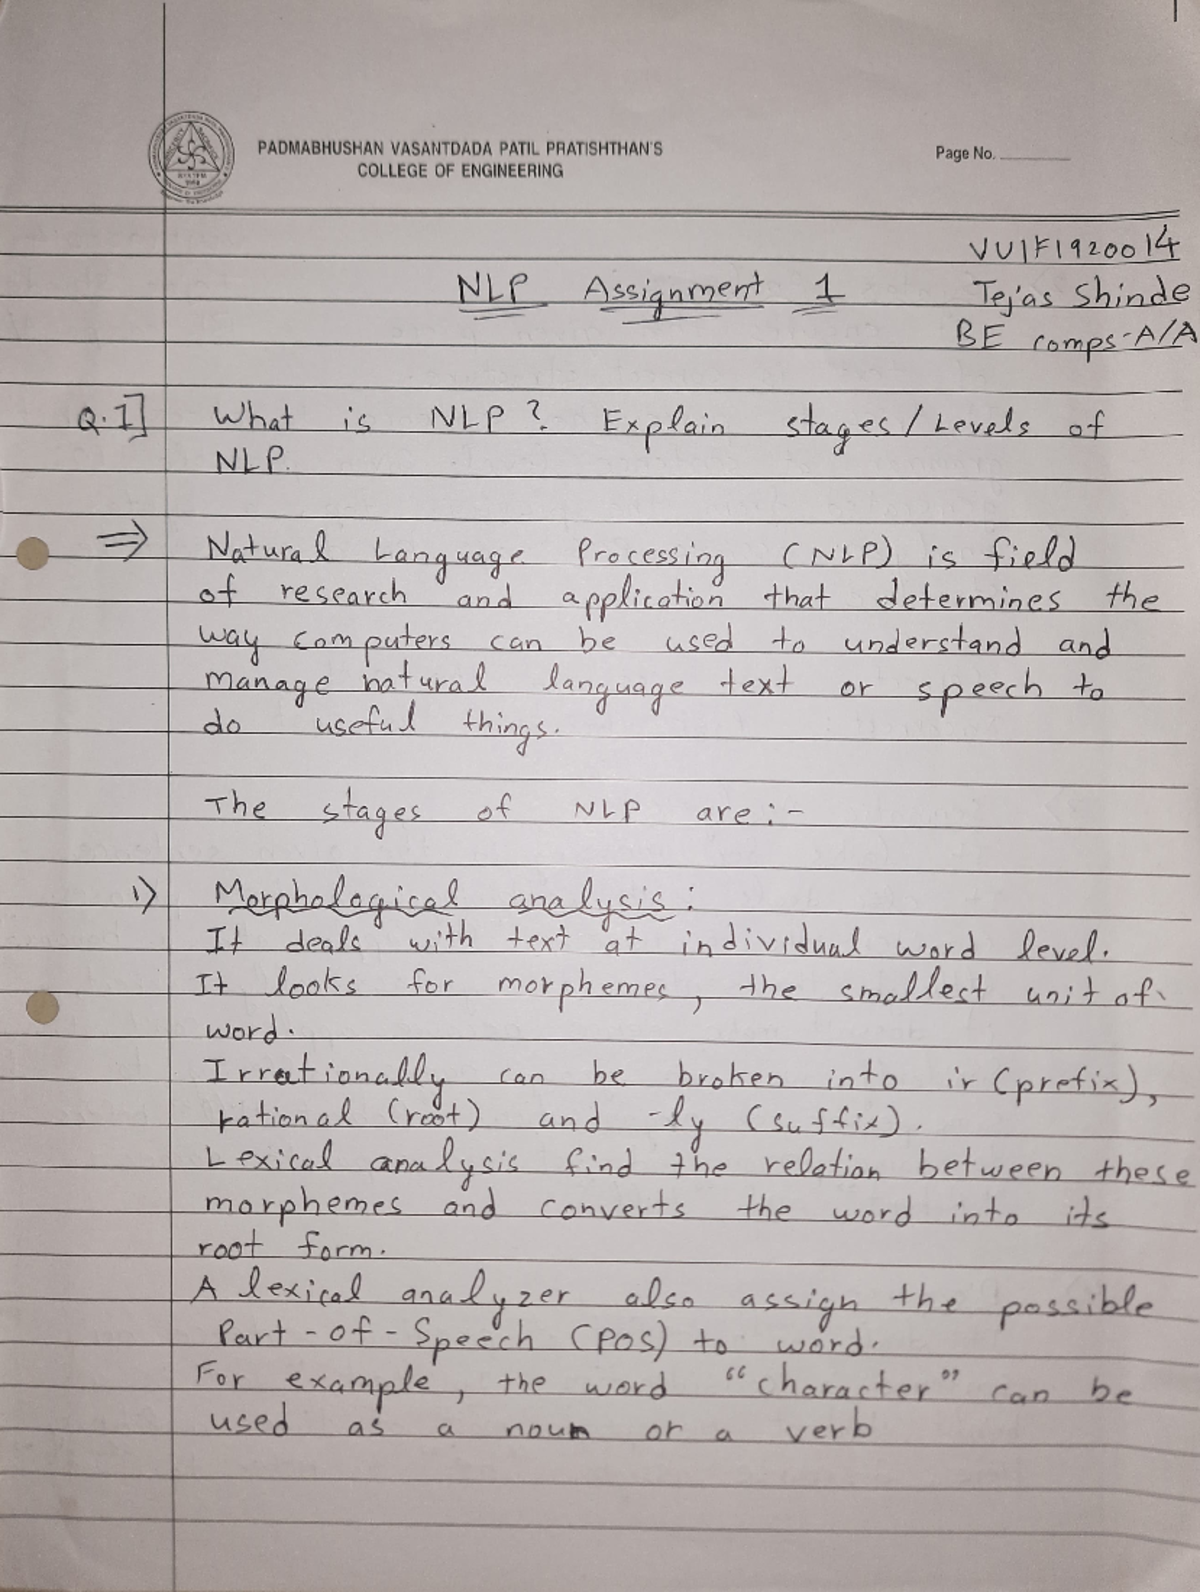 PADMABHUSHAN VASANTDADA PATIL PRATISHTHAN'S
COLLEGE OF ENGINEERING
Page No.
VU1F1920014
NLP Assignment 1
Tejas Shinde
BE comps-A/A
Q.1] What is NLP? Explain stages/Levels of
NLP.
⇒ Natural Language Processing (NLP) is field
of research and application that determines the
way computers can be used to understand and
manage natural language text or speech to
do useful things.
The stages of NLP are:-
1) Morphological analysis:
It deals with text at individual word level.
It looks for morphemes, the smallest unit of
word.
Irrationally can be broken into ir (prefix),
rational (root) and -ly (suffix).
Lexical analysis find the relation between these
morphemes and converts the word into its
root form.
A lexical analyzer also assign the possible
Part-of-Speech (POS) to word.
For example, the word "character" can be
used as a noun or a verb